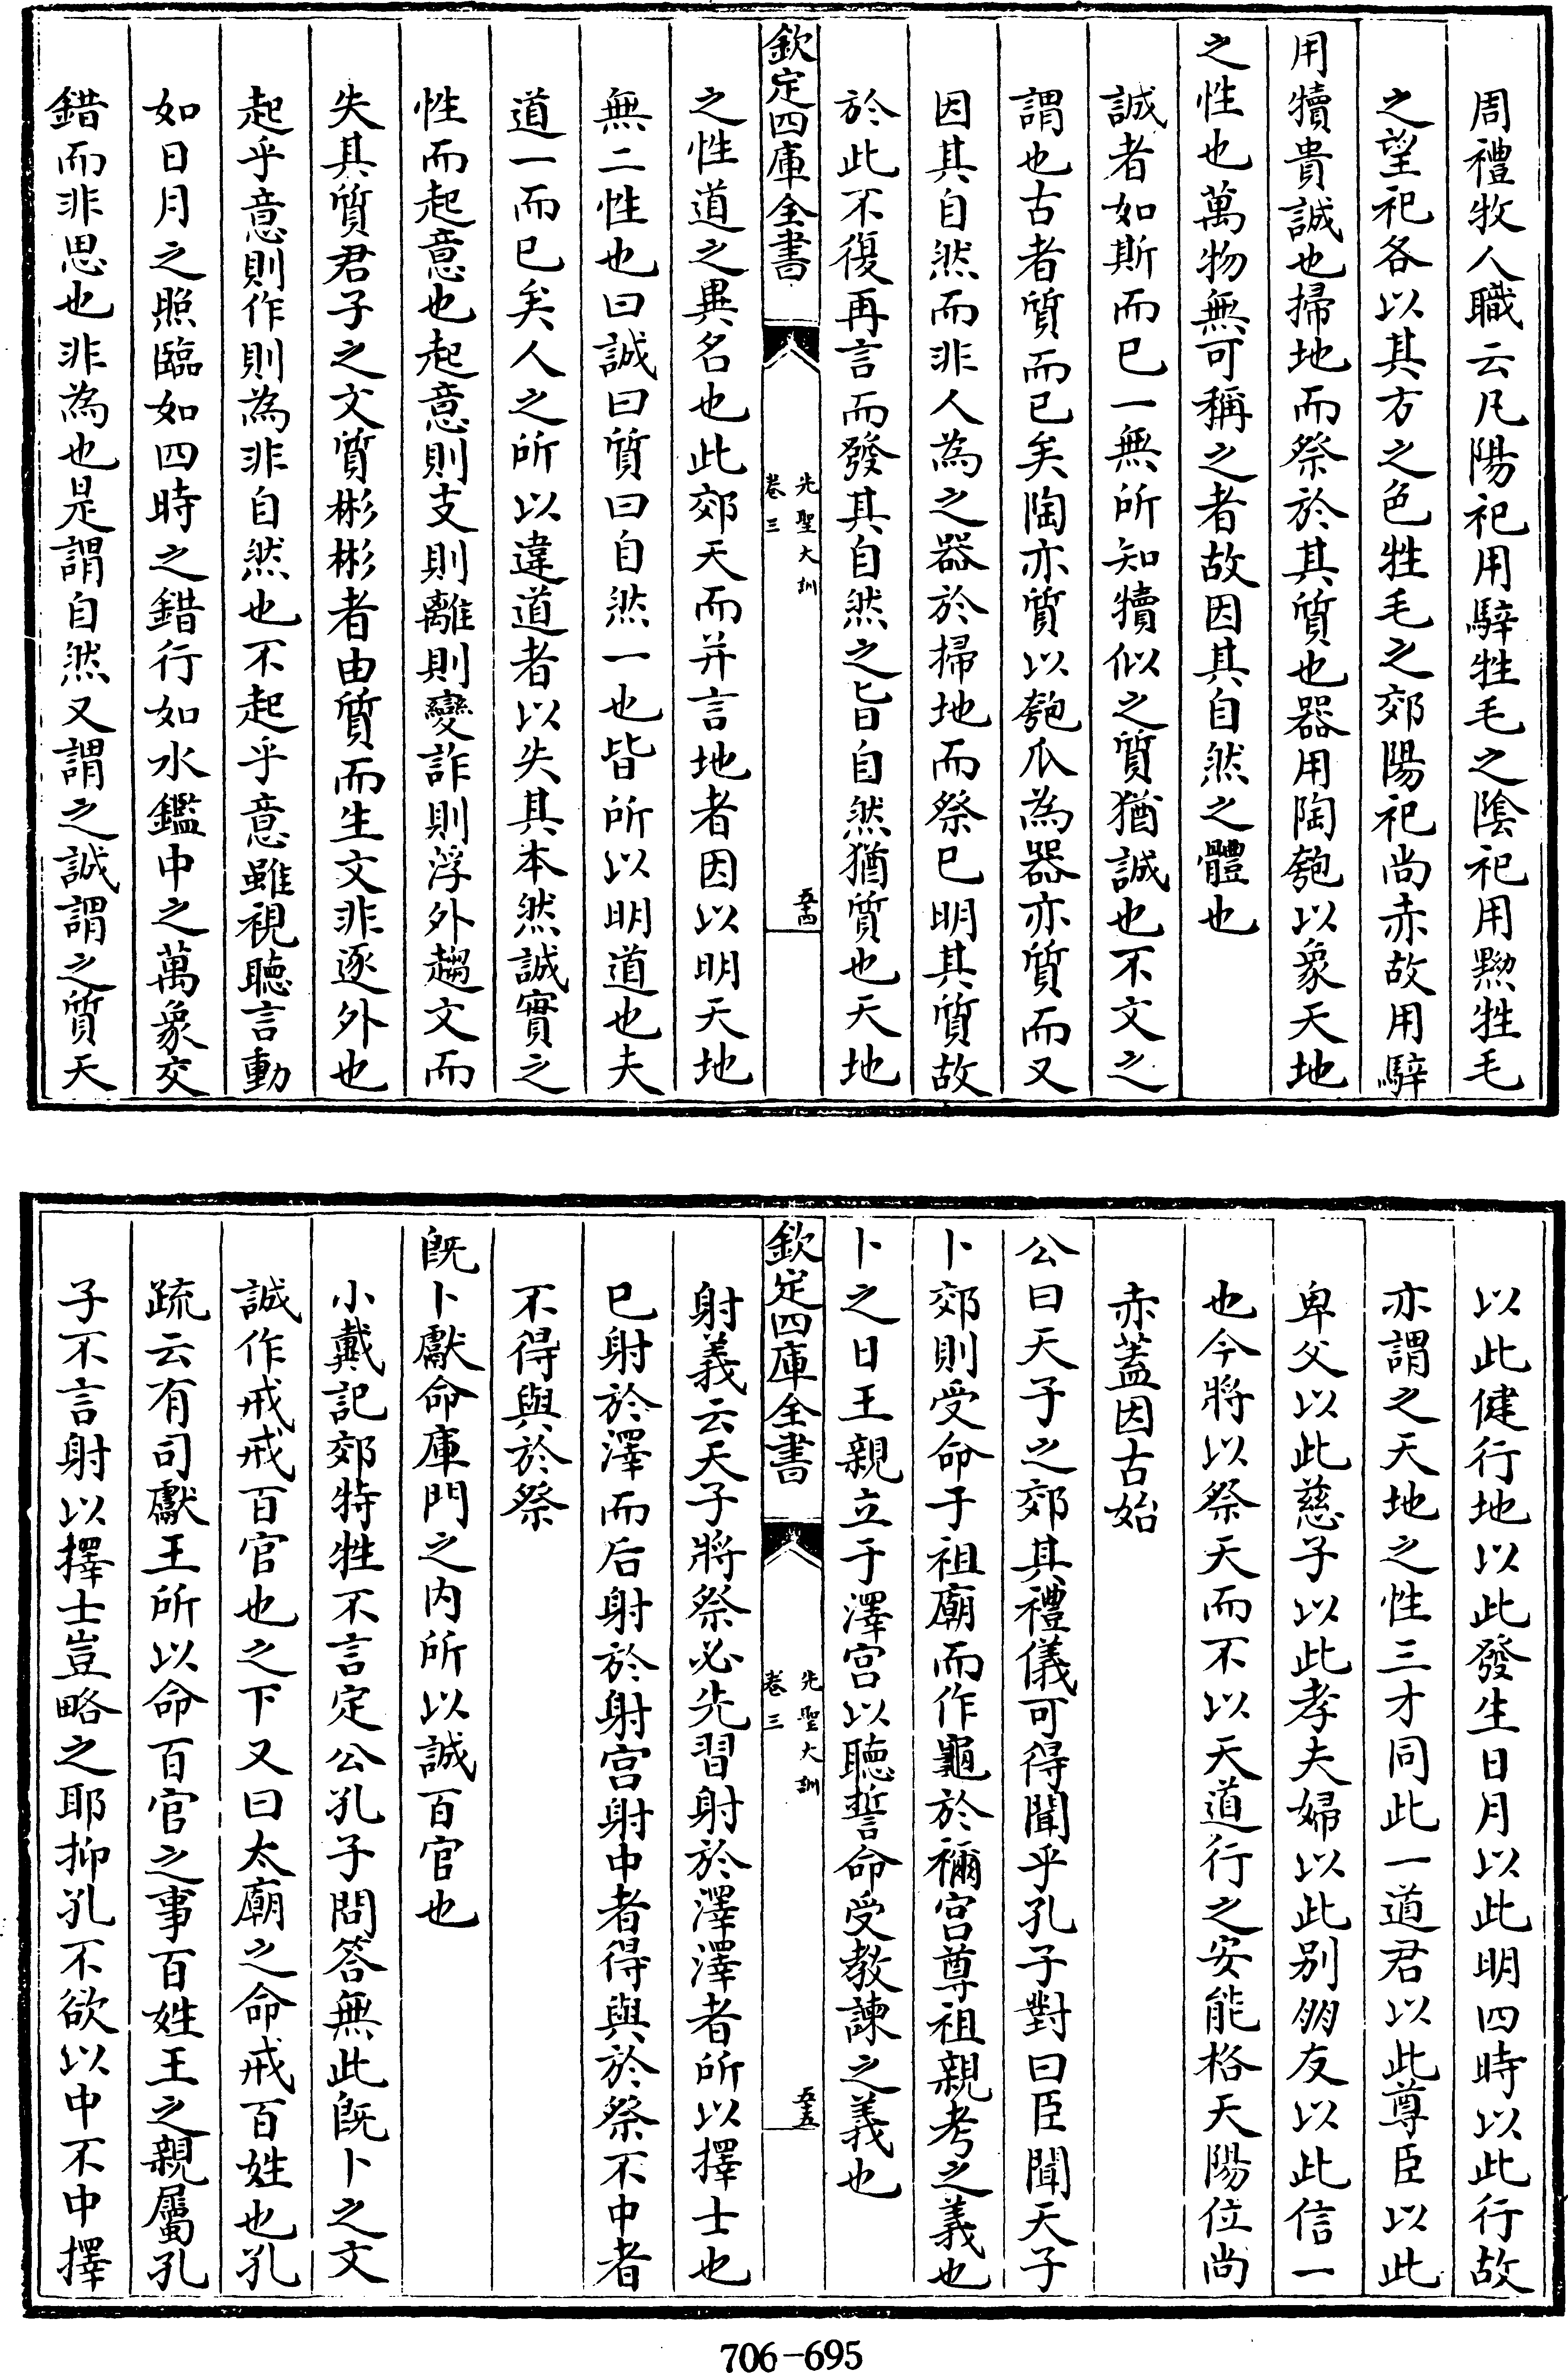 周禮牧人職云凡陽祀用騂牲毛之隂祀用黝牲毛
之望祀各以其方之色牲毛之郊陽祀尚赤故用騂
用犢貴誠也掃地而祭於其質也器用陶匏以象天地
之性也萬物無可稱之者故因其自然之體也
誠者如斯而已一無所知犢似之質猶誠也不文之
謂也古者質而已矣陶亦質以匏瓜為器亦質而又
因其自然而非人為之器於掃地而祭已明其質故
於此不復再言而發其自然之旨自然猶質也天地
欽定四庫全書
先聖大訓
卷三
五十四
之性道之異名也此郊天而并言地者因以明天地
無二性也曰誠曰質曰自然一也皆所以明道也夫
道一而已矣人之所以違道者以失其本然誠實之
性而起意也起意則支則離則變詐則浮外趨文而
失其質君子之文質彬彬者由質而生文非逐外也
起乎意則作則為非自然也不起乎意雖視聽言動
如日月之照臨如四時之錯行如水鑑中之萬象交
錯而非思也非為也是謂自然又謂之誠謂之質天
以此健行地以此發生日月以此明四時以此行故
亦謂之天地之性三才同此一道君以此尊臣以此
卑父以此慈子以此孝夫婦以此别朋友以此信一
也今將以祭天而不以天道行之安能格天陽位尚
赤蓋因古始
公曰天子之郊其禮儀可得聞乎孔子對曰臣聞天子
卜郊則受命于祖廟而作龜於禰宮尊祖親考之義也
卜之日王親立于澤宮以聽誓命受教諫之義也
欽定四庫全書
先聖大訓
卷三
五十五
射義云天子將祭必先習射於澤澤者所以擇士也
已射於澤而后射於射宮射中者得與於祭不中者
不得與於祭
旣卜獻命庫門之内所以誡百官也
小戴記郊特牲不言定公孔子問答無此旣卜之文
誡作戒戒百官也之下又曰太廟之命戒百姓也孔
疏云有司獻王所以命百官之事百姓王之親屬孔
子不言射以擇士豈略之耶抑孔不欲以中不中擇
706-695